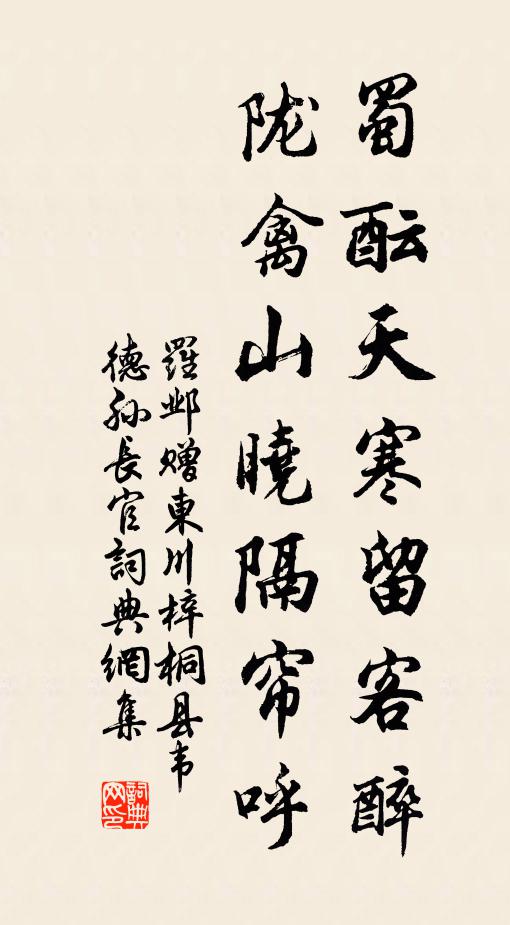 蜀酝天寒留客醉
陇禽山晓隔帘呼
羅邺赠東川梓桐县韦
德孙長官詞典網集
詞典
网印